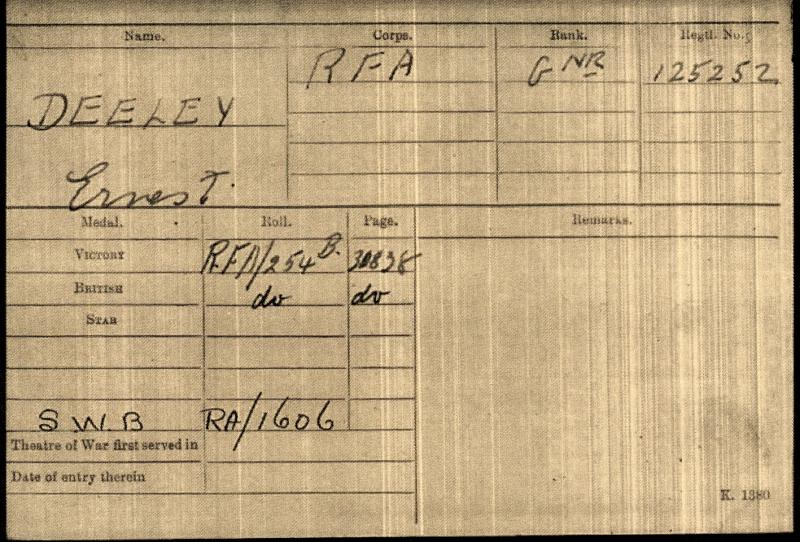 Name. Corps. Rank. Regtl. No.
RFA GNR 125252
DEELEY
Ernest
Medal. Roll. Page. Remarks.
VICTORY RFA/254 B.
BRITISH do do
STAR
S.W.B RA/1606
Theatre of War first served in
Date of entry therein
K. 1380